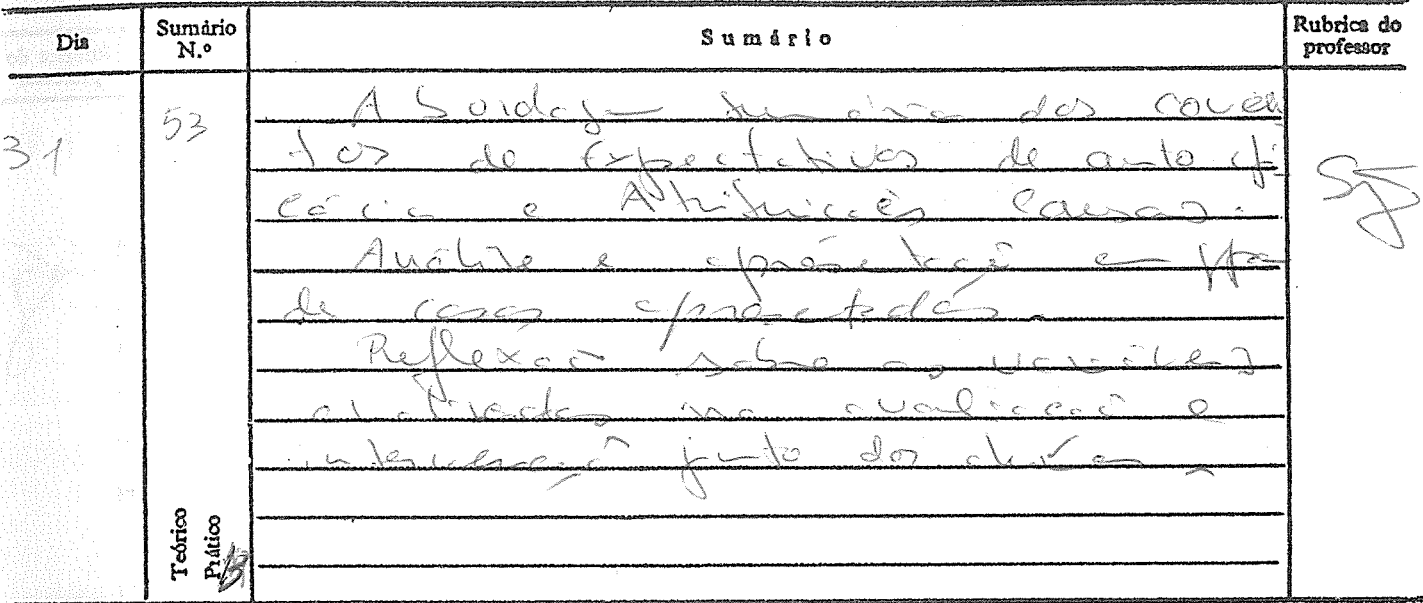 Dia Sumário N.º Sumário Rubrica do professor
31 53 Abordagem sumária dos concei
tos de Expectativas de auto efi
cácia e Atribuições Causas.
Análise e apresentação em
de casos apresentados.
Reflexão sobre as variáveis
analisadas na avaliação e
intervenção junto dos
Teórico
Prático